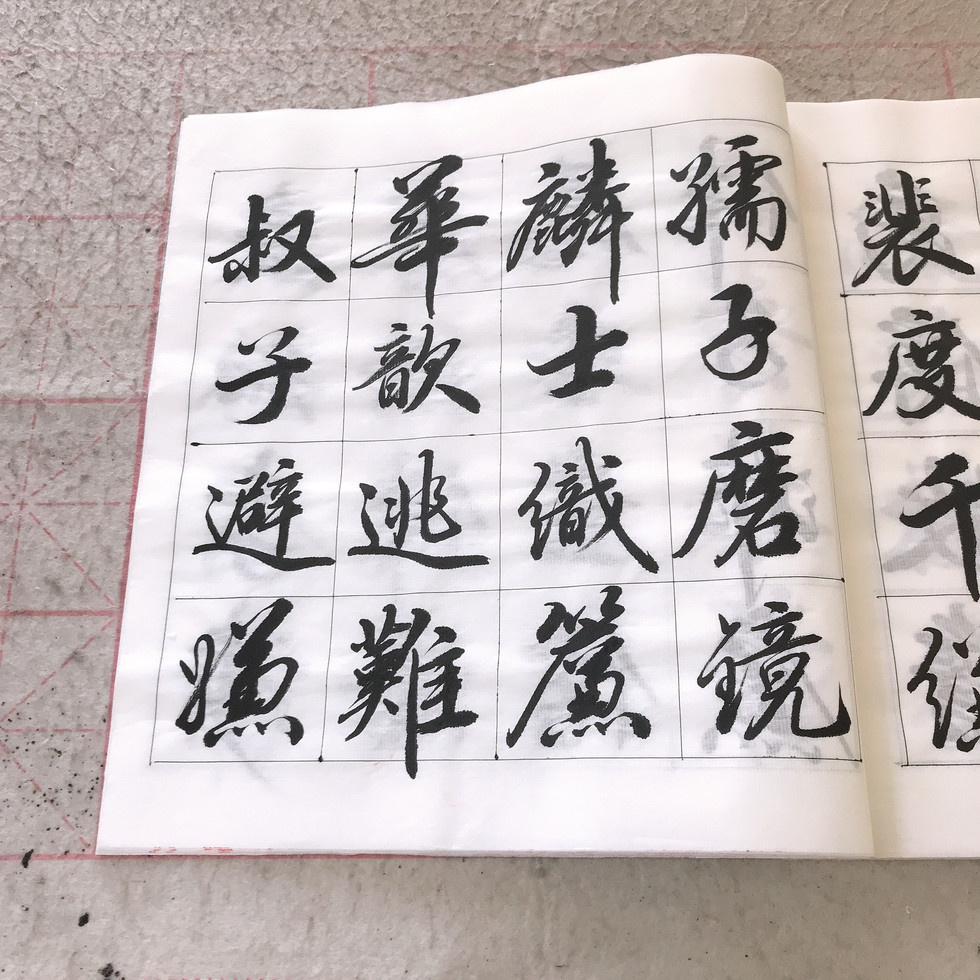 裴度千
孺子磨鏡
麟士織簾
華歆逃難
叔子避嫌